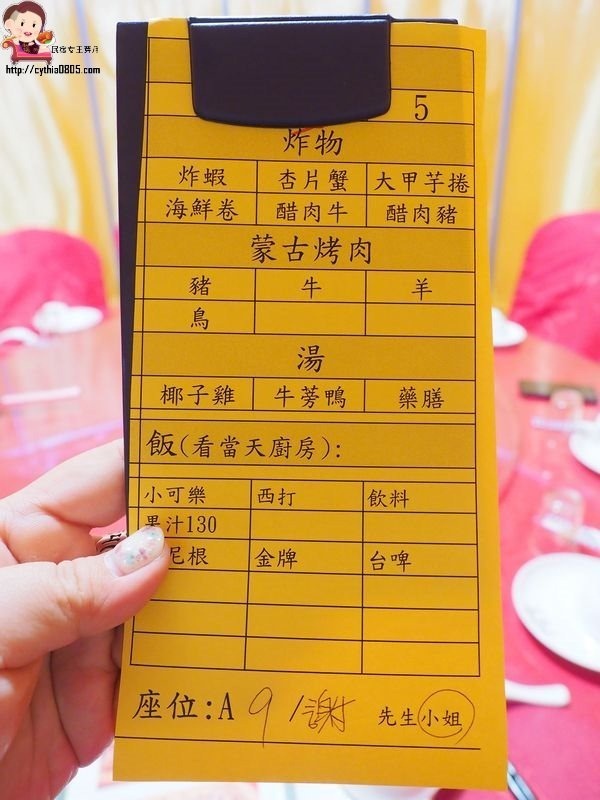 民宿女王芽月
http://cythia0805.com
5
炸物
炸蝦 杏片蟹 大甲芋捲
海鮮卷 醋肉牛 醋肉豬
蒙古烤肉
豬 牛 羊
鳥
湯
椰子雞 牛蒡鴨 藥膳
飯(看當天廚房):
小可樂 西打 飲料
果汁130
尼根 金牌 台啤
座位:A 9 / 謝 先生小姐